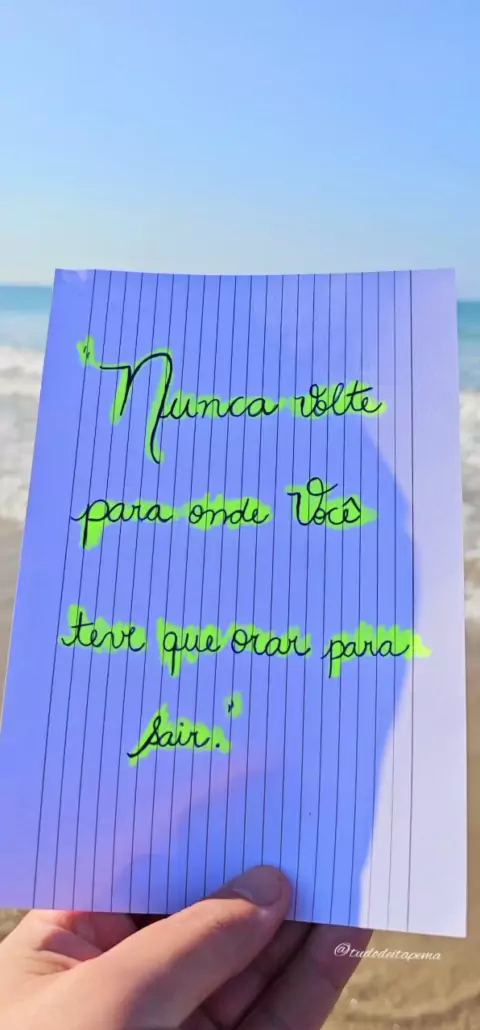 "Nunca volte
para onde Você
teve que orar para
sair."
@tudodeitapema